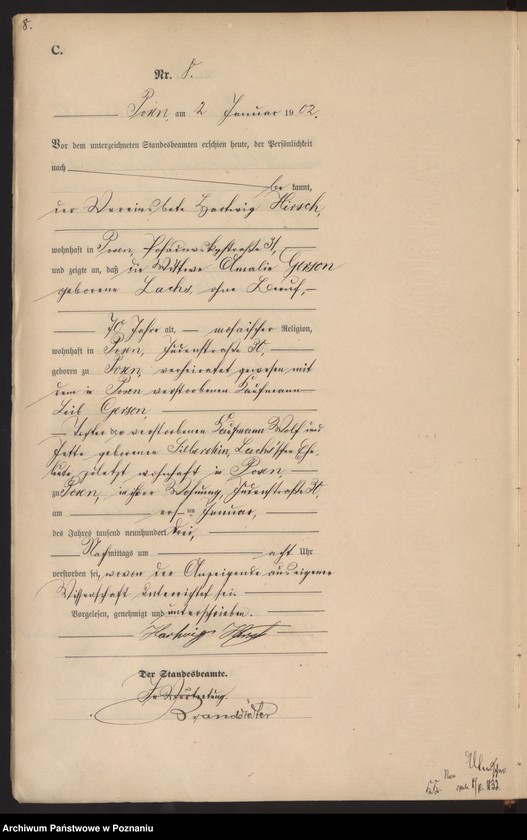 8.
C.
Nr. 8.
Posen, am 2 Januar 1902.
Vor dem unterzeichneten Standesbeamten erschien heute, der Persönlichkeit
nach
be kannt,
der Vereinsbote Hartwig Hirsch,
wohnhaft in Posen, 31,
und zeigte an, daß die Wittwe Amalie Gerson
geborene Lachs, ohne Beruf,
70 Jahre alt, mosaischer Religion,
wohnhaft in Posen, Judenstraße 30,
geboren zu Posen, verheirathet gewesen mit
dem in Posen verstorbenen Kaufmann
Leib Gerson,
Tochter der verstorbenen Kaufmann Wolf und
Jette geborene Lachs'schen Ehe-
leute, zuletzt wohnhaft in Posen
zu Posen, in ihrer Wohnung, Judenstraße 30,
am ersten Januar,
des Jahres tausend neunhundert drei,
Nachmittags um acht Uhr
verstorben sei, wovon der Anzeigende aus eigener
Wissenschaft unterrichtet sei.
Vorgelesen, genehmigt und unterschrieben.
Hartwig Hirsch
Der Standesbeamte.
In Vertretung.
Brandstetter
Archiwum Państwowe w Poznaniu